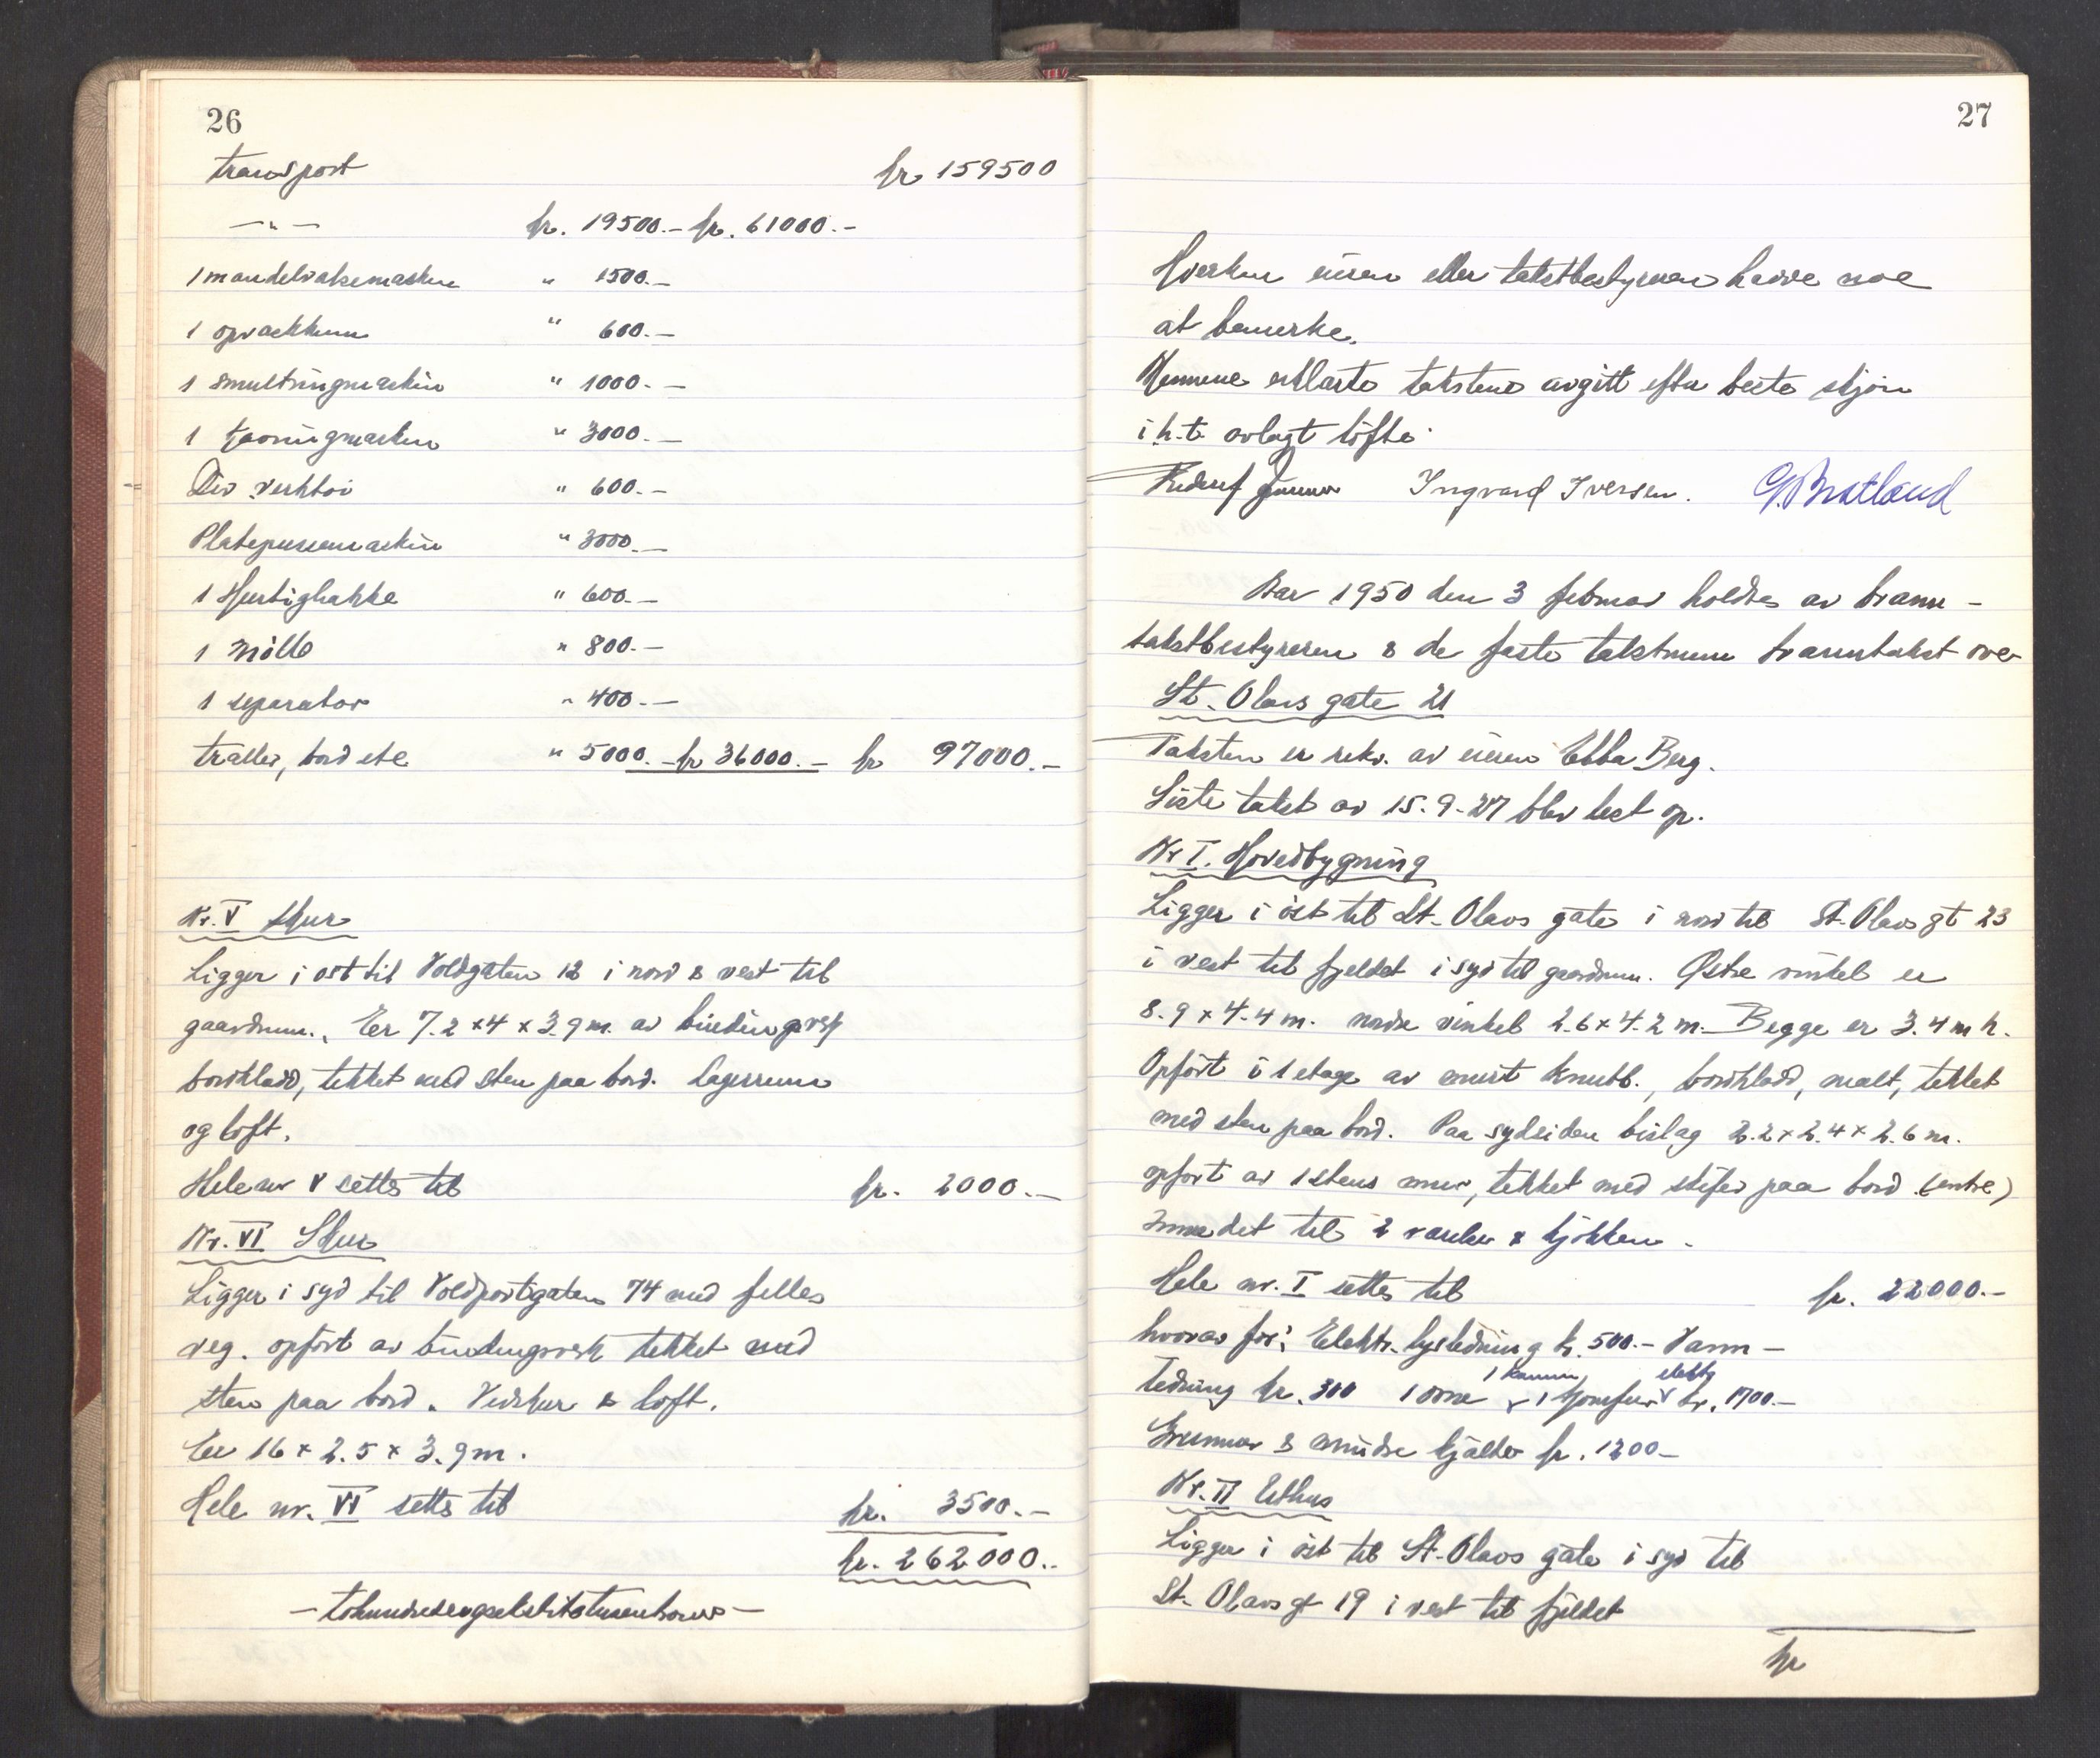 26
transport kr. 159500
—"— kr. 19500.– kr. 61000.–
1 mandelvalsemaskin " 1500.–
1 opvaskkum " 600.–
1 smultringmaskin " 1000.–
1 maskin " 3000.–
Div verktøi " 600.–
Platepussemaskin " 3000.–
1 Hurtighakke " 600.–
1 mølle " 800.–
1 separator " 400.–
traller, bord etc " 5000.– kr 36000.– kr 97000.–
Nr. V Skur
Ligger i øst til Voldgaten 12 i nord & vest til
gaardsrum. Er 7.2 x 4 x 3.9 m. av bindingsverk
bordkledd, tekket med sten paa bord. Lagerrum
og loft.
Hele nr V settes til kr. 2000.–
Nr. VI Skur
Ligger i syd til Voldportgaten 74 med felles
veg. opført av bindingsverk tekket med
sten paa bord. Vedskur & loft.
Er 16 x 2.5 x 3.9 m.
Hele nr. VI settes til kr. 3500.–
kr. 262000.–
– tohundredeogsekstitotusenkroner –
27
Hverken eieren eller takstbestyreren havde noe
at bemerke.
Mennene erklærte taksten avgitt efter beste skjøn
i h.t. avlagt løfte.
Ingvard Iversen. G. Bratland
Aar 1950 den 3 februar holdtes av brann-
takstbestyreren & de faste takstmenn branntakst over
St. Olavs gate 21
Taksten er rekv. av eieren Ebba Berg.
Siste takst av 15.9-27 blev lest op.
Nr I. Hovedbygning
Ligger i øst til St. Olavs gate i nord til St. Olavs gt 23
i vest til fjeldet i syd til gaardsrum. Østre vinkel er
8.9 x 4.4 m. nordre vinkel 2.6 x 4.2 m. Begge er 3.4 m h.
Opført i 1 etage av murt knubb., bordkledd, malt, tekket
med sten paa bord. Paa sydsiden bislag 2.2 x 2.4 x 2.6 m.
opført av 1 stens mur, tekket med skifer paa bord (entre)
Innredet til 2 værelser & kjøkken.
Hele nr. I settes til kr. 22000.–
hvorav for: Elektr. lysledning kr. 500.– Vann-
ledning kr. 300 1 ovn 1 kamin & 1 elektr komfur kr. 1700.–
Grunnmur & mindre kjelder kr. 1200–
Nr. II Uthus
Ligger i øst til St. Olavs gate i syd til
St. Olavs gt 19 i vest til fjeldet
kr